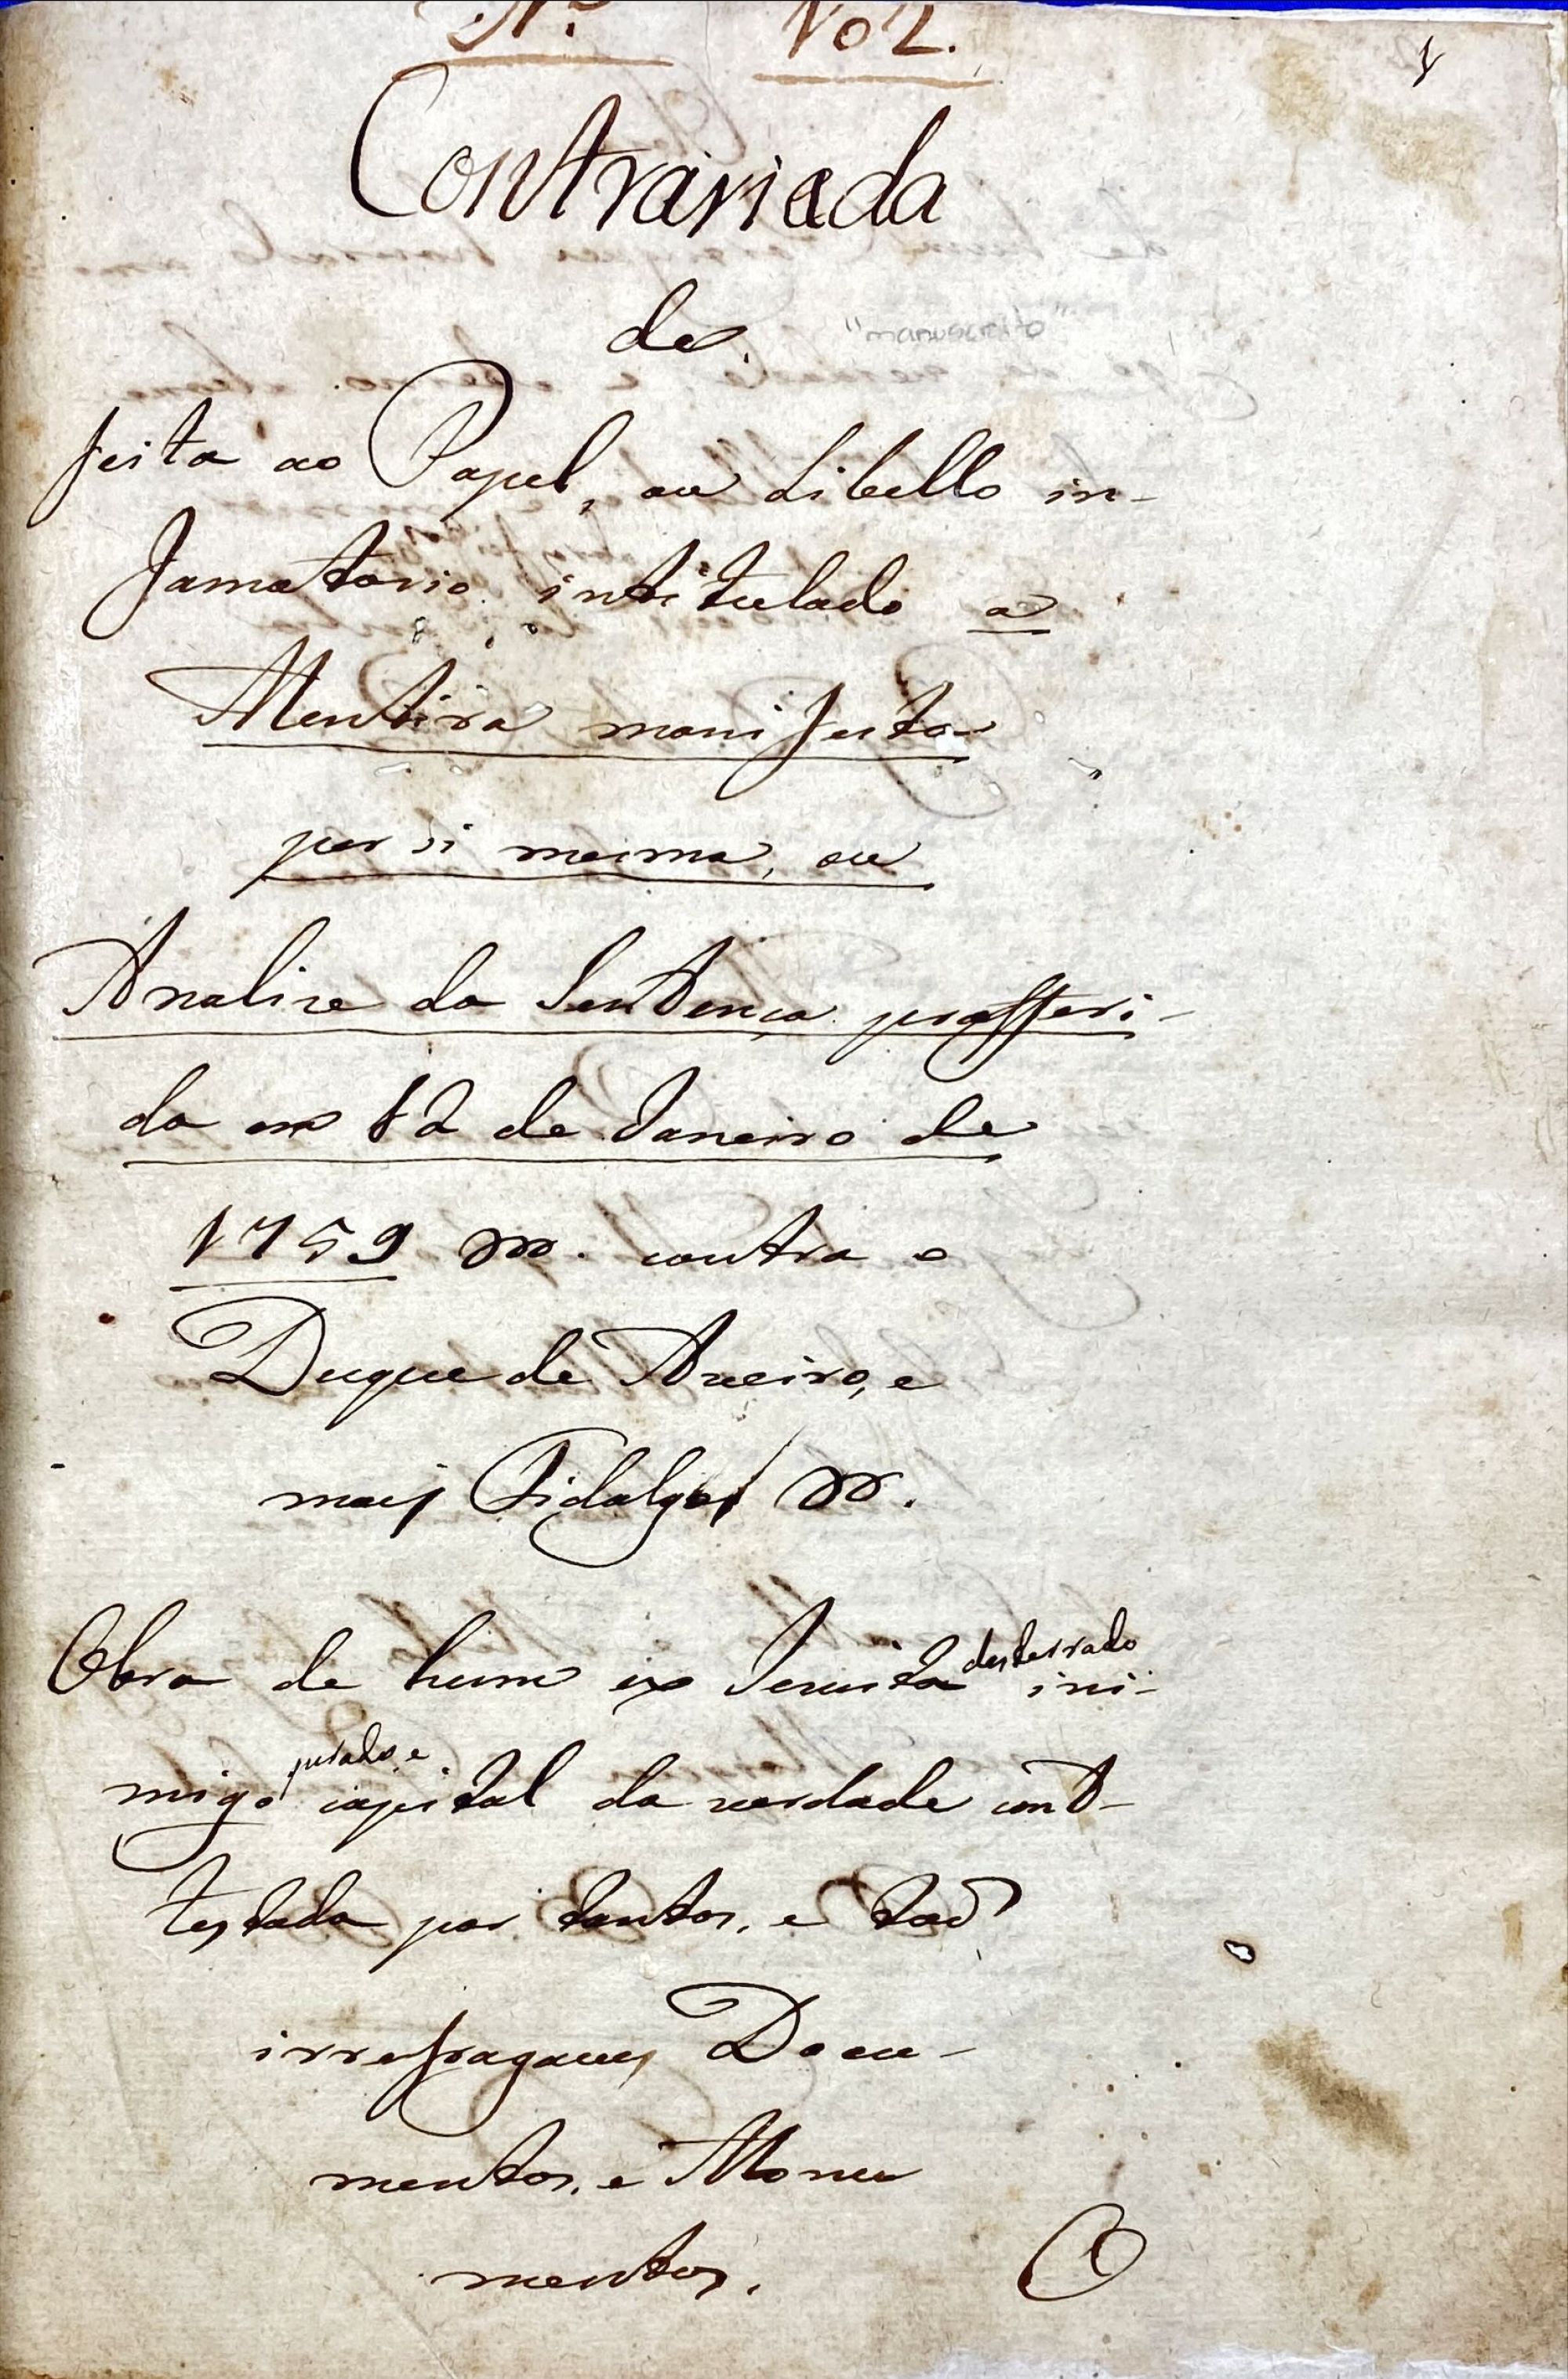 N.º Vol.
1
Contrarieda
de
"manuscrito"
feita ao Papel, ou Libello in-
famatorio intitulado a
Mentira manifesta
por si mesma, ou
Analize da Sentença profferi-
da em 12 de Janeiro de
1759 contra o
Duque de Aveiro, e
mais Fidalgos
Obra de hum ex Jesuita desterrado ini-
migo jurado, e capital da verdade cont-
testada por tantos, e taõ
irrefragaveis Docu-
mentos, e Monu
mentos.
O